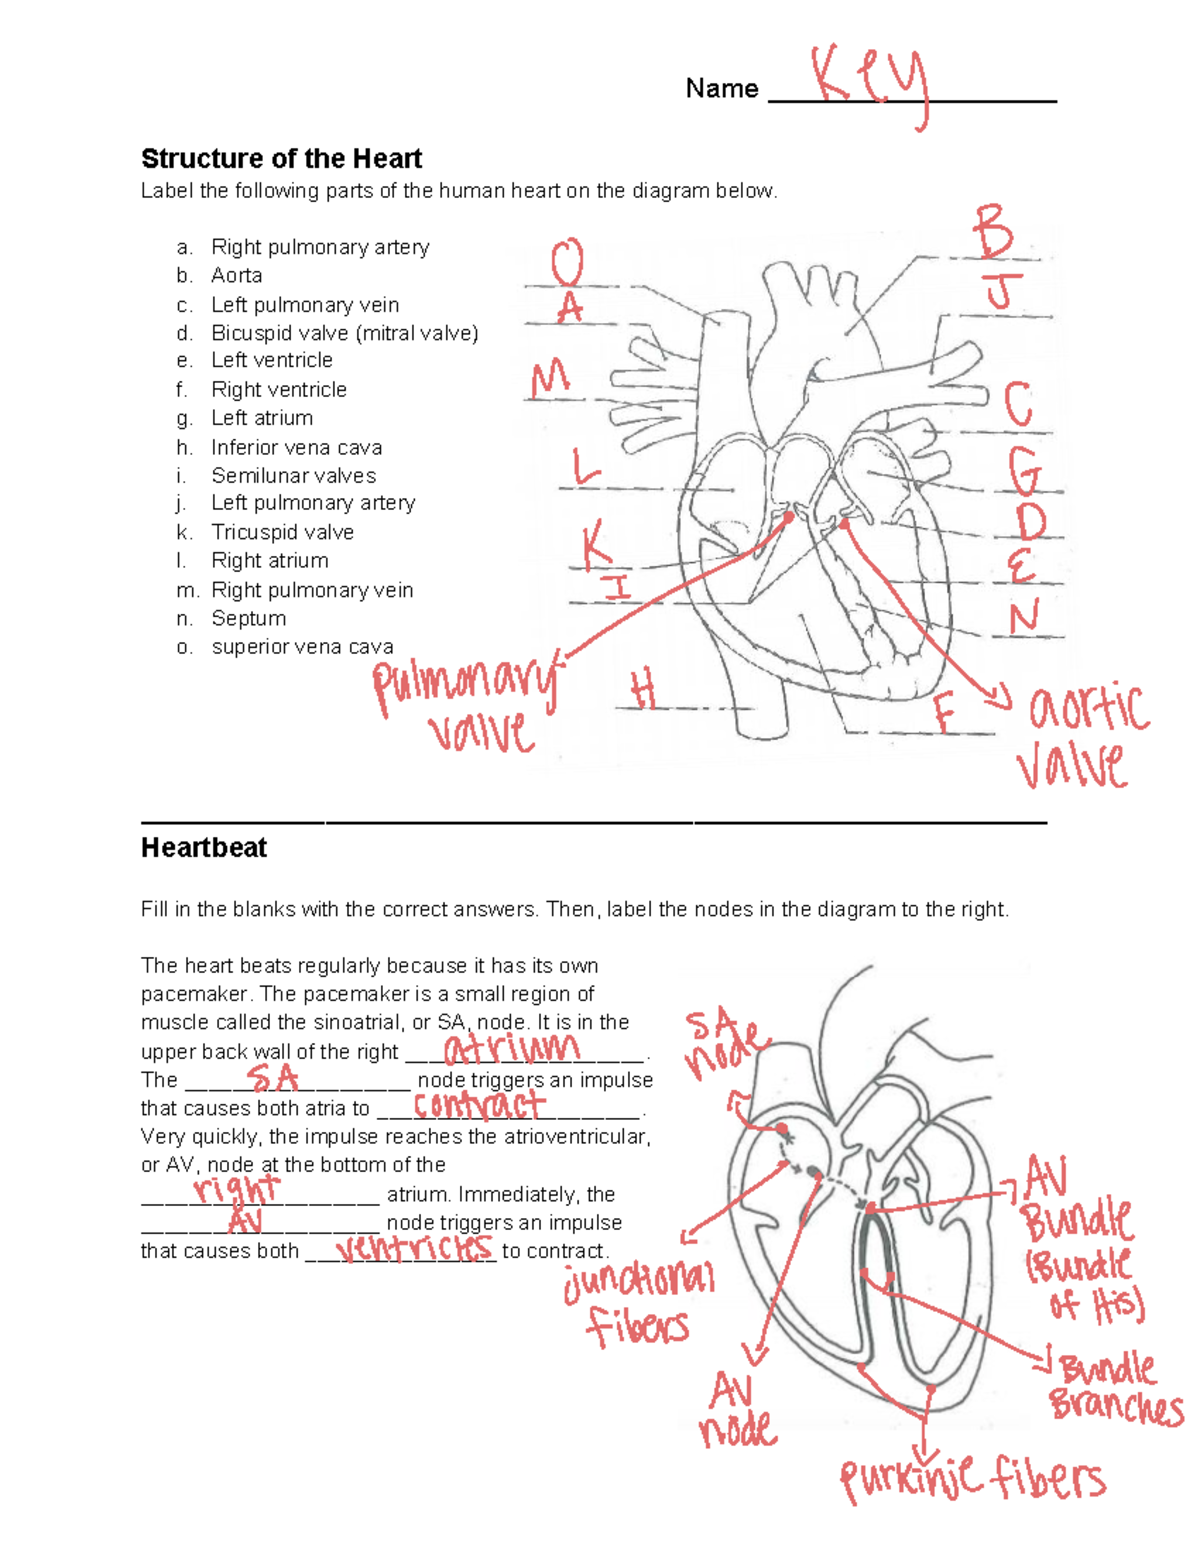 Name Key
Structure of the Heart
Label the following parts of the human heart on the diagram below.
a. Right pulmonary artery
b. Aorta
c. Left pulmonary vein
d. Bicuspid valve (mitral valve)
e. Left ventricle
f. Right ventricle
g. Left atrium
h. Inferior vena cava
i. Semilunar valves
j. Left pulmonary artery
k. Tricuspid valve
l. Right atrium
m. Right pulmonary vein
n. Septum
o. superior vena cava
O
A
M
L
K
I
H
B
J
C
G
D
E
N
F
pulmonary
valve
aortic
valve
Heartbeat
Fill in the blanks with the correct answers. Then, label the nodes in the diagram to the right.
The heart beats regularly because it has its own
pacemaker. The pacemaker is a small region of
muscle called the sinoatrial, or SA, node. It is in the
upper back wall of the right atrium.
The SA node triggers an impulse
that causes both atria to contract.
Very quickly, the impulse reaches the atrioventricular,
or AV, node at the bottom of the
right atrium. Immediately, the
AV node triggers an impulse
that causes both ventricles to contract.
SA
node
junctional
fibers
AV
node
AV
Bundle
(Bundle
of His)
Bundle
Branches
purkinje fibers